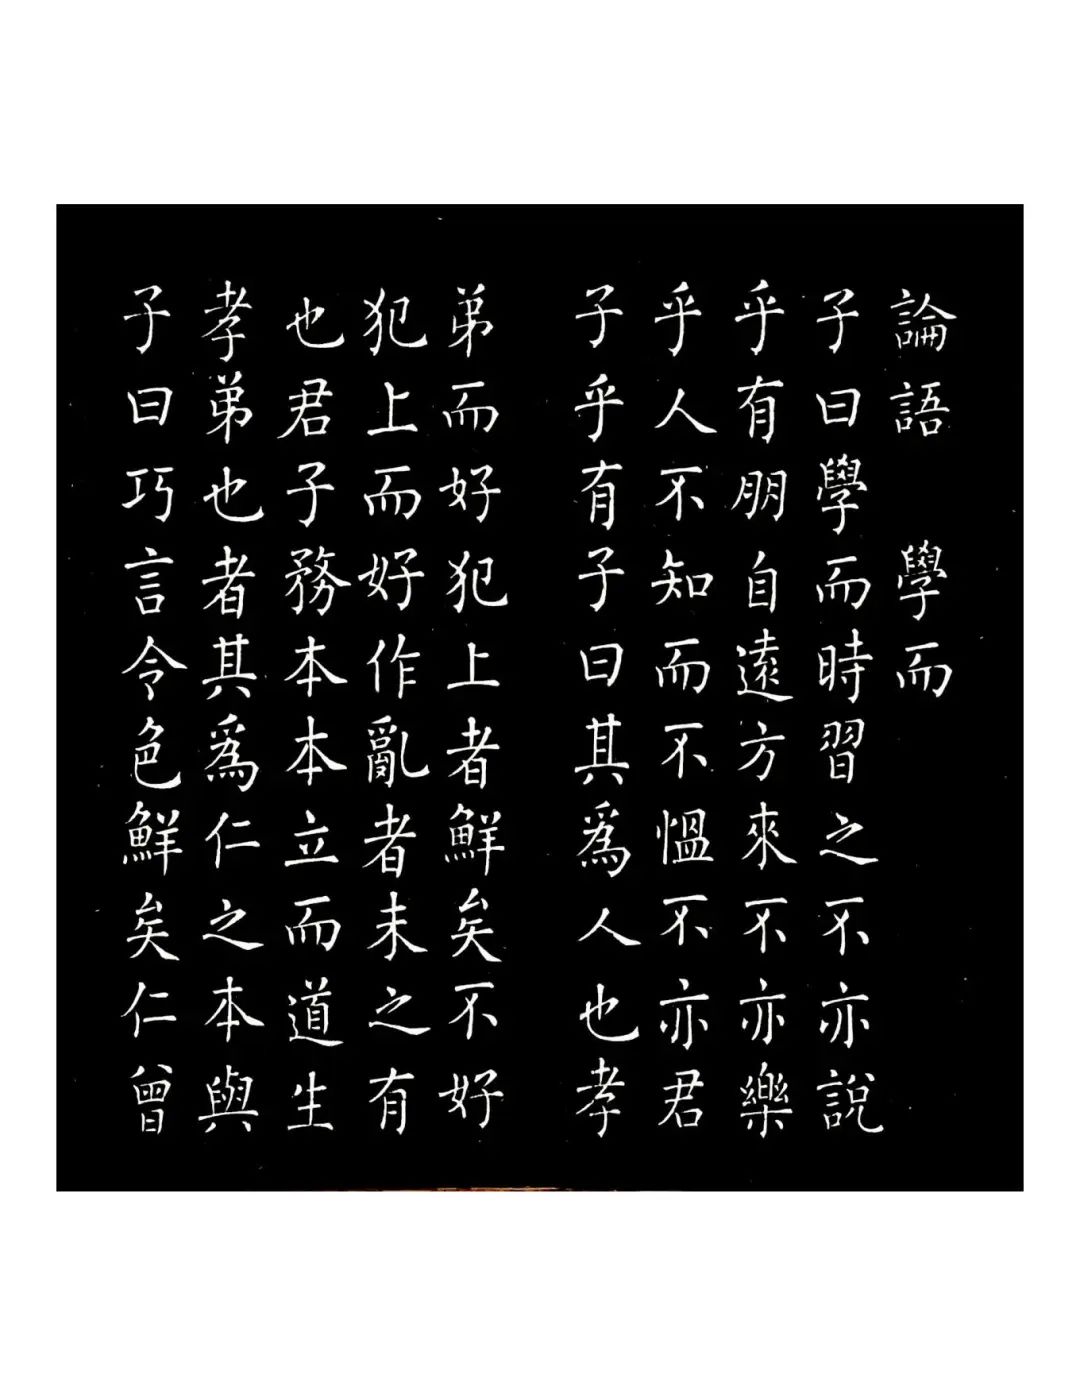 論語 學而
子曰學而時習之不亦說
乎有朋自遠方來不亦樂
乎人不知而不慍不亦君
子乎有子曰其爲人也孝
弟而好犯上者鮮矣不好
犯上而好作亂者未之有
也君子務本本立而道生
孝弟也者其爲仁之本與
子曰巧言令色鮮矣仁曾